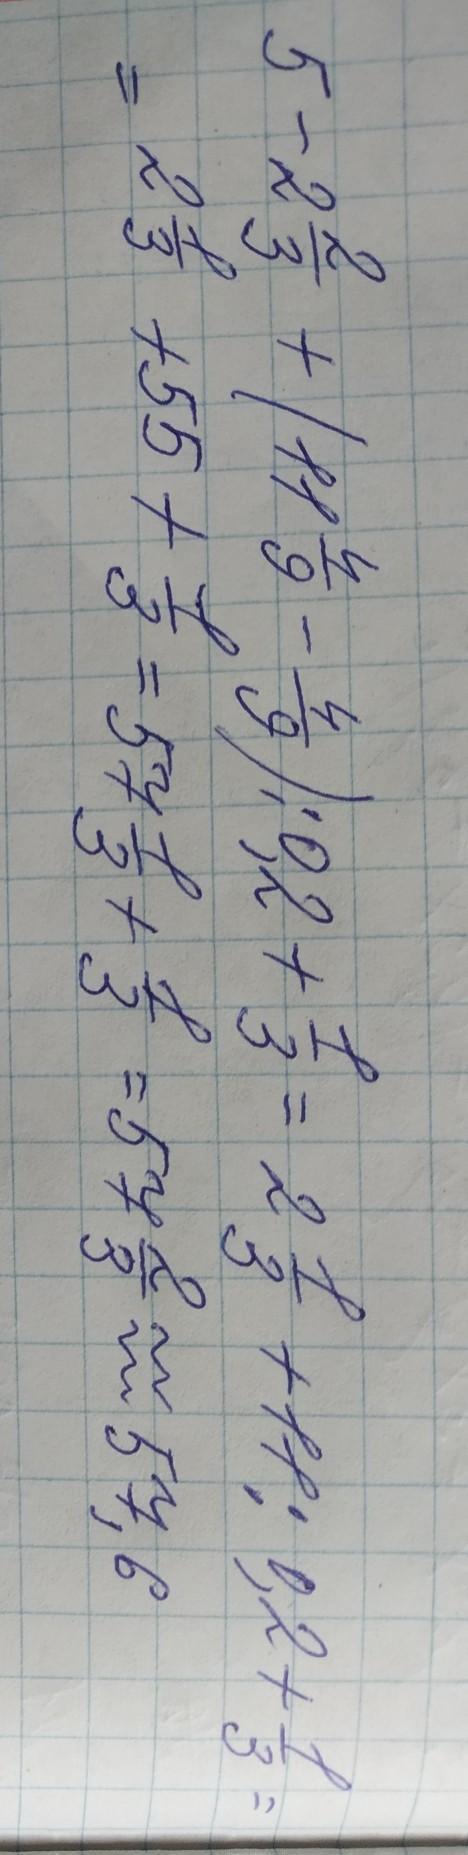 5 - 2 2/3 + (11 4/9 - 4/9) : 0,2 + 1/3 = 2 1/3 + 11 : 0,2 + 1/3 =
= 2 1/3 + 55 + 1/3 = 57 1/3 + 1/3 = 57 2/3 ≈ 57,6